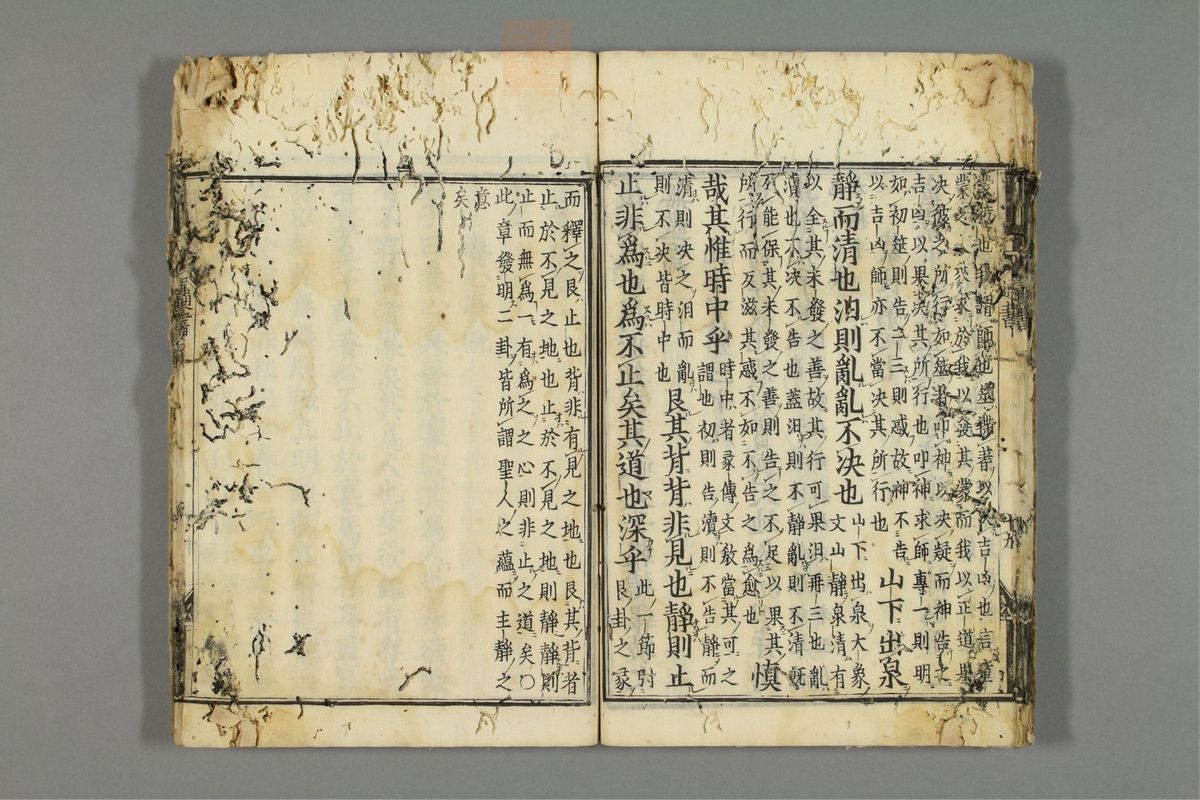 謂師也筮揲蓍以决吉凶也言童
蒙之人來求於我以發其蒙而我以正道果
决彼之所行如筮者叩神以决疑而神告之
吉凶以果决其所行也叩神求師專一則明
如初筮則告二三則惑故神不告
以吉凶師亦不當决其所行也
山下出泉
静而清也汩則亂亂不决也
山下出泉大象
文山静泉清有
以全其未發之善故其行可果汩再三也亂
瀆也不决不告也蓋汩則不静亂則不清既
不能保其未發之善則告之不足以果其
所行而反滋其惑不如不告之為愈也
慎
哉其惟時中乎
時中者彖傳文教當其可之
謂也初則告瀆則不告静而
清則决之汩而亂
則不决皆時中也
艮其背背非見也静則止
止非爲也爲不止矣其道也深乎
此一節引
艮卦之彖
而釋之艮止也背非有見之地也艮其背者
止於不見之地也止於不見之地則静静則
止而無為一有為之之心則非止之道矣〇
此章發明二卦皆所謂聖人之蘊而主静之
意矣